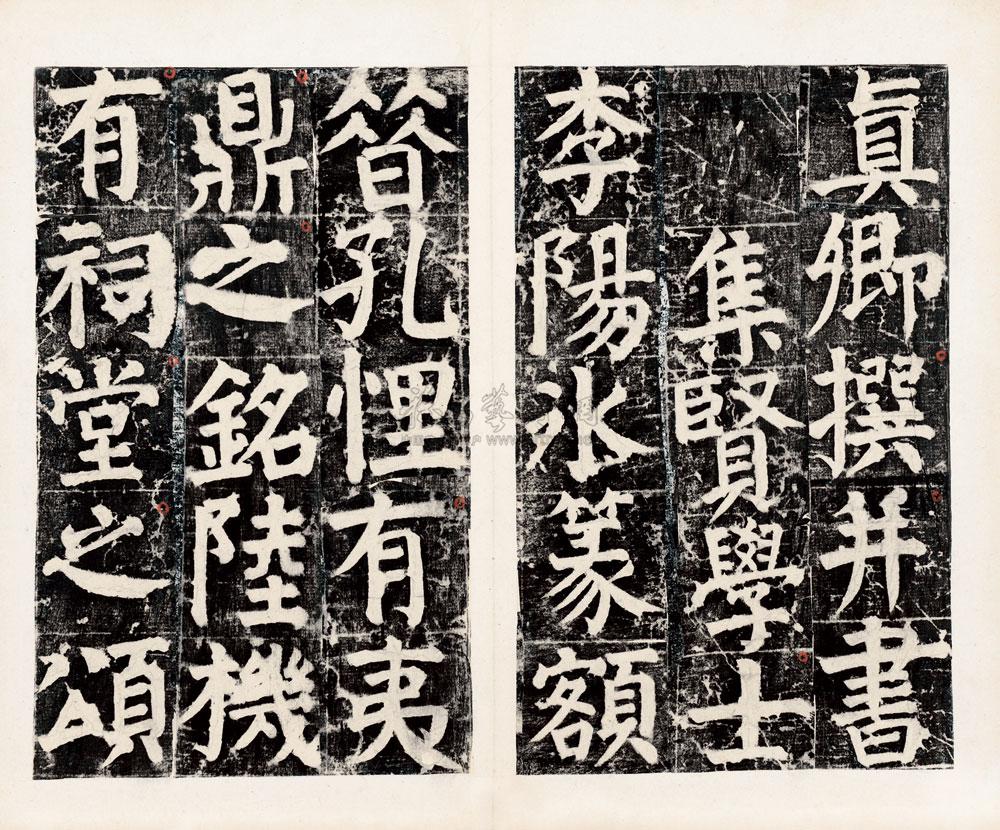 眞卿撰并書
集賢學士
李陽氷篆額
㫺孔悝有夷
鼎之銘陸機
有祠堂之頌